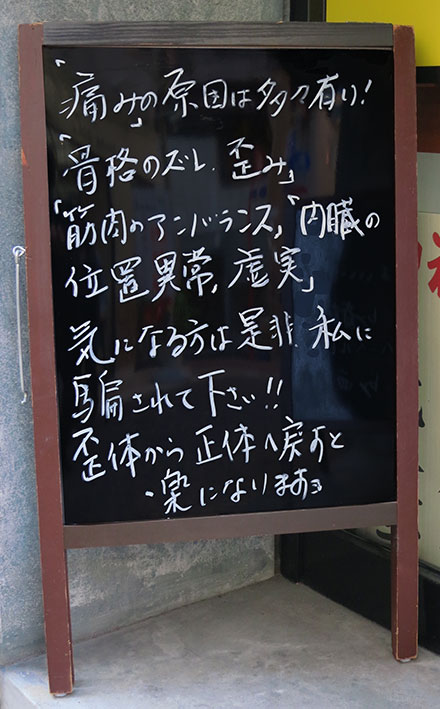 「痛み」の原因は多々有り!
「骨格のズレ、歪み」
「筋肉のアンバランス」「内臓の
位置異常、虚実」
気になる方は是非私に
騙されて下さい!!
歪体から正体へ戻すと
楽になりますヨ